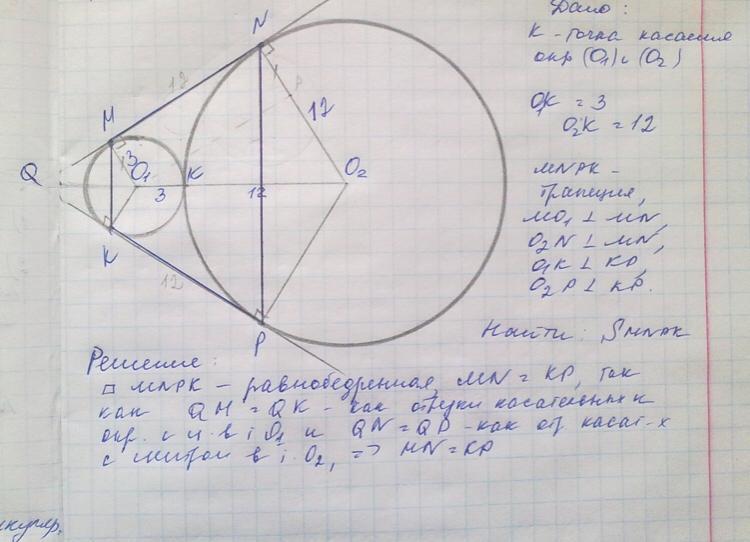 Дано:
K - точка касания
окр (O₁) и (O₂)
O₁K = 3
O₂K = 12
MNPK -
трапеция,
MO₁ ⊥ MN,
O₂N ⊥ MN,
O₁K ⊥ KP,
O₂P ⊥ KP.
Найти: SMNPK
N
12
12
P
M
3
O₁
Q
3
K
12
O₂
K
12
P
Решение:
□ MNPK - равнобедренная, MN = KP, так
как QM = QK - как отрезки касательных к
окр. с ц. в т. O₁ и QN = QP - как от. касат-х
с в т. O₂, => MN = KP